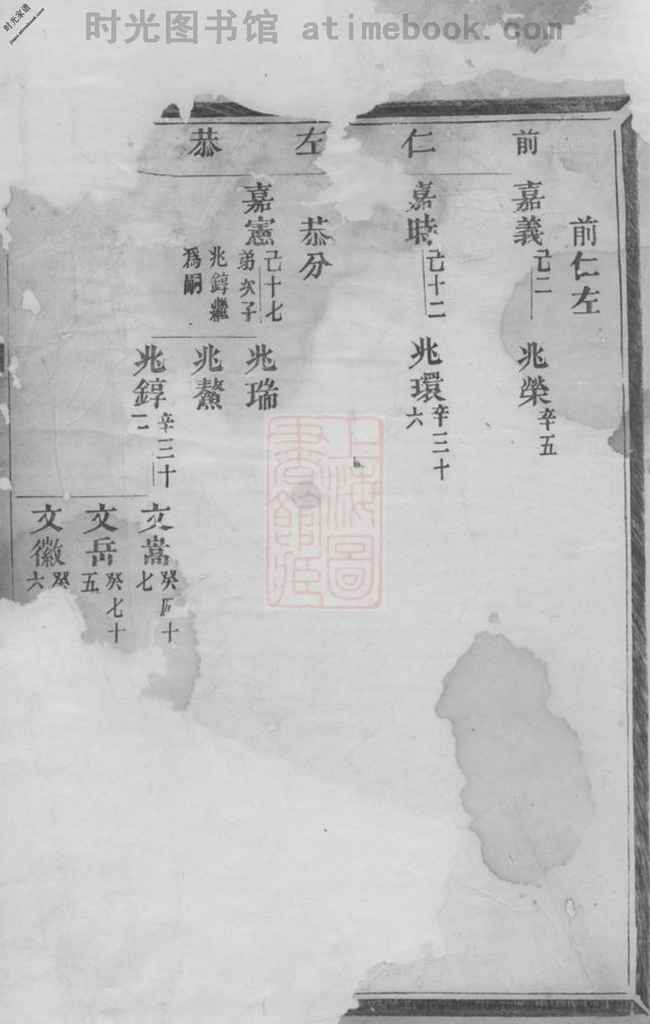 时光图书馆 atimebook.com
时光家谱
前
仁
左
恭
前仁左
嘉義 己二
兆榮 辛五
嘉時 己十二
兆環 辛三十六
恭分
嘉憲 己十七
弟次子
兆錞繼
爲嗣
兆瑞
兆鰲
兆錞 辛三十二
文嵩 癸四十七
文岳 癸七十五
文徽 癸
六
上海圖
書館藏